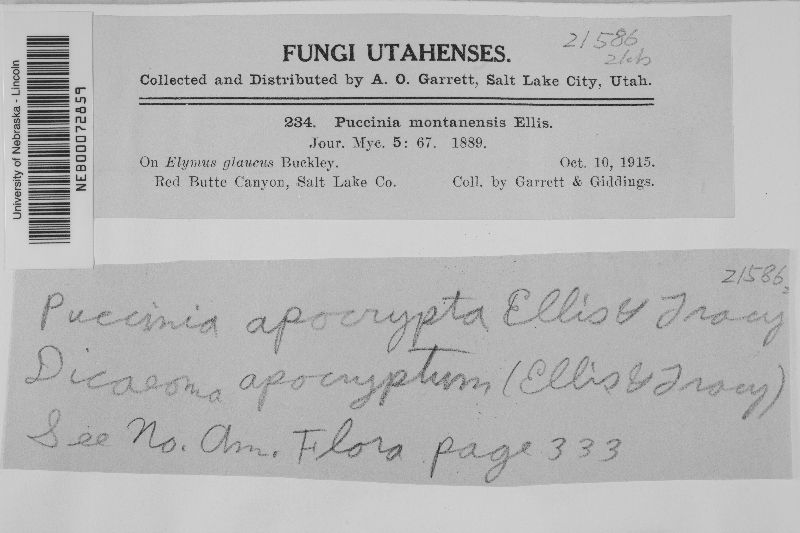 University of Nebraska - Lincoln
NEB00072859
21586
FUNGI UTAHENSES.
Collected and Distributed by A. O. Garrett, Salt Lake City, Utah.
234. Puccinia montanensis Ellis.
Jour. Myc. 5: 67. 1889.
On Elymus glaucus Buckley. Oct. 10, 1915.
Red Butte Canyon, Salt Lake Co. Coll. by Garrett & Giddings.
21586
Puccinia apocrypta Ellis & Tracy
Dicaeoma apocryptum (Ellis & Tracy)
See No. Am. Flora page 333